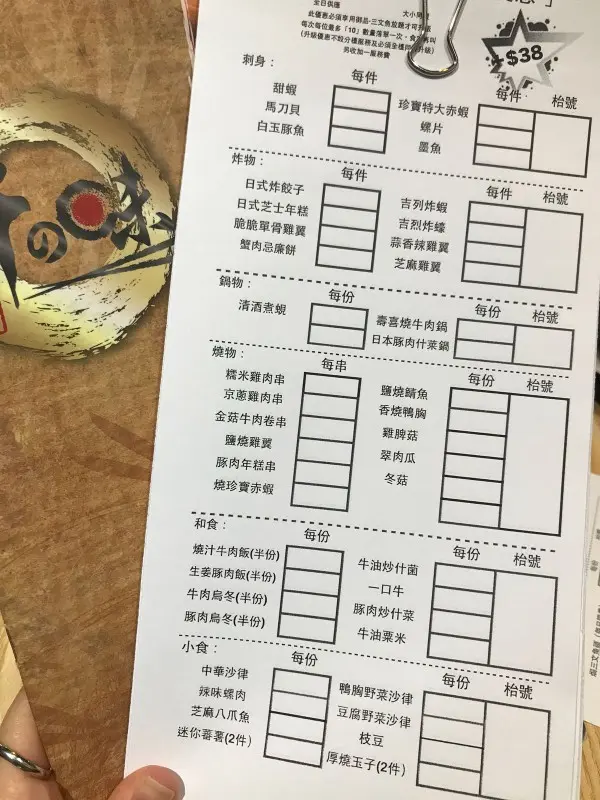 全日供應
大小同
此優惠必須享用御品·三文魚放題才可升級
每次每位最多「10」數量落單一次
(升級優惠不設分檯服務及必須全檯
升級)
另收加一服務費
+$38
刺身：
每件
每件
枱號
甜蝦
珍寶特大赤蝦
馬刀貝
螺片
白玉豚魚
墨魚
炸物：
每件
每件
枱號
日式炸餃子
吉列炸蝦
日式芝士年糕
吉烈炸蠔
脆脆單骨雞翼
蒜香辣雞翼
蟹肉忌廉餅
芝麻雞翼
鍋物：
每份
每份
枱號
清酒煮蜆
壽喜燒牛肉鍋
日本豚肉什菜鍋
燒物：
每串
每份
枱號
糯米雞肉串
鹽燒鯖魚
京蔥雞肉串
香燒鴨胸
金菇牛肉卷串
雞脾菇
鹽燒雞翼
翠肉瓜
豚肉年糕串
冬菇
燒珍寶赤蝦
和食：
每份
每份
枱號
燒汁牛肉飯(半份)
牛油炒什菌
生姜豚肉飯(半份)
一口牛
牛肉烏冬(半份)
豚肉炒什菜
豚肉烏冬(半份)
牛油粟米
小食：
每份
每份
枱號
中華沙律
鴨胸野菜沙律
辣味螺肉
豆腐野菜沙律
芝麻八爪魚
枝豆
迷你蕃薯(2件)
厚燒玉子(2件)
の味